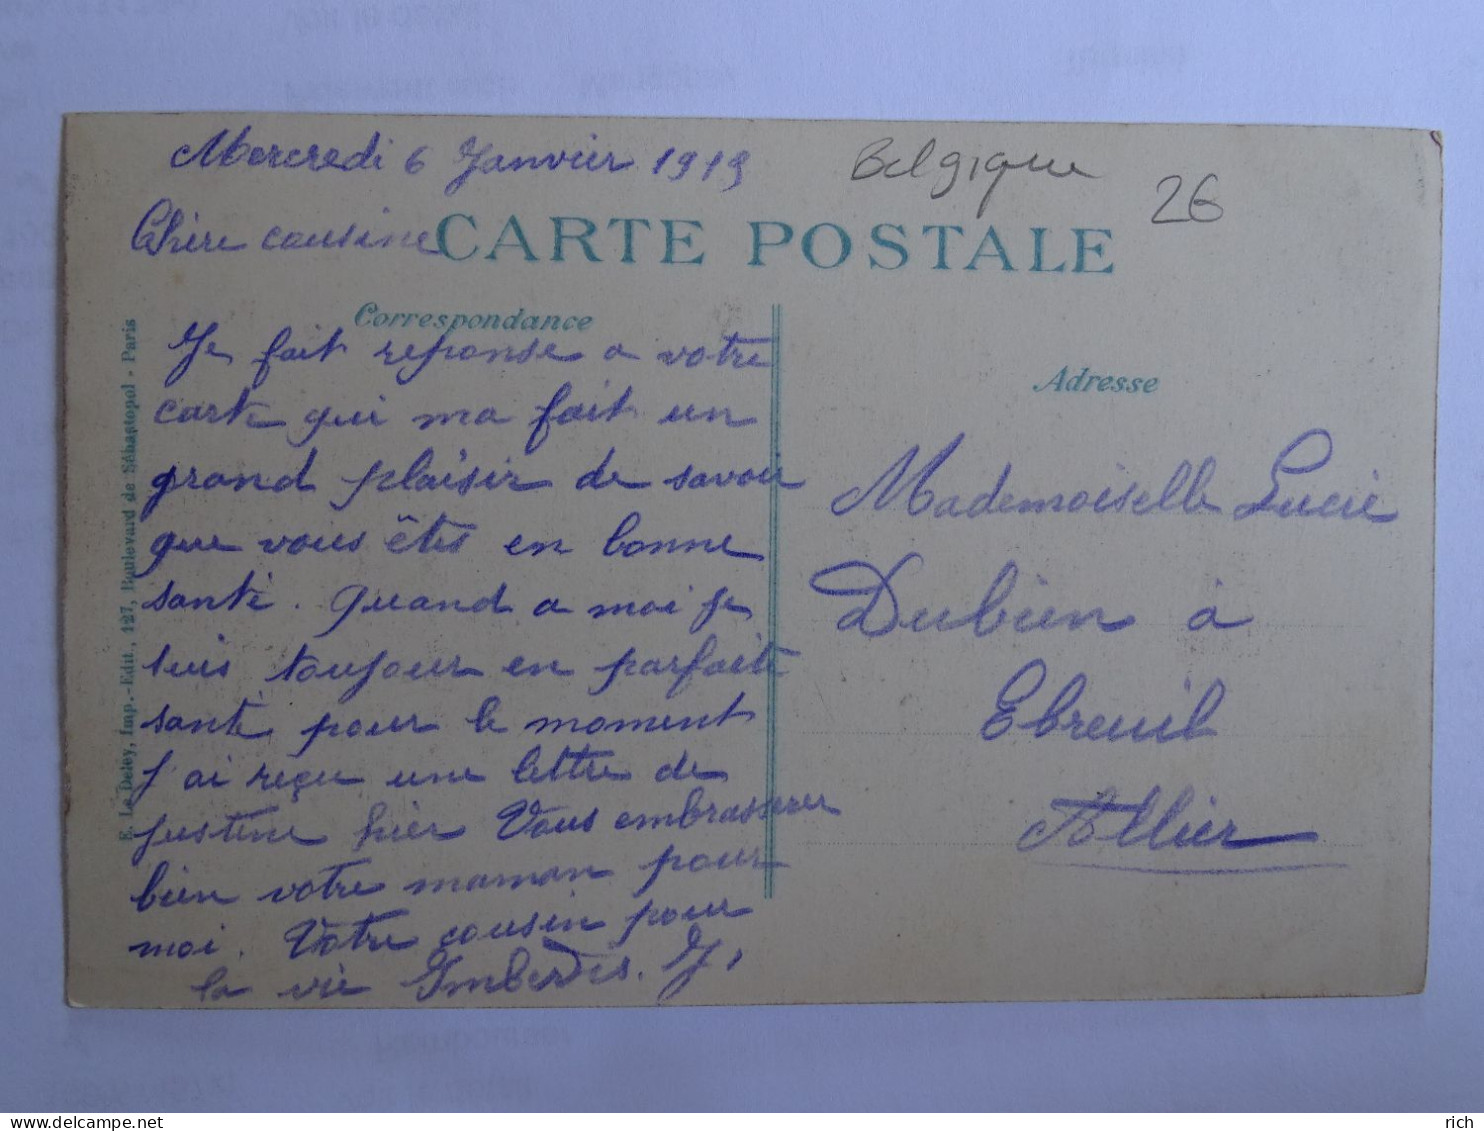 Mercredi 6 Janvier 1919
Belgique
26
Chère cousine
CARTE POSTALE
Correspondance
Je fait reponse a votre
carte qui ma fait un
grand plaisir de savoir
que vous êtes en bonne
santé. quand a moi je
suis toujour en parfaite
santé pour le moment
j'ai reçu une lettre de
justine hier Vous embrasserer
bien votre maman pour
moi. Votre cousin pour
la vie
Adresse
Mademoiselle Lucie
Dubien à
Ebreuil
Allier
E. Le Deley, Imp.-Edit., 127, Boulevard de Sébastopol - Paris
rich